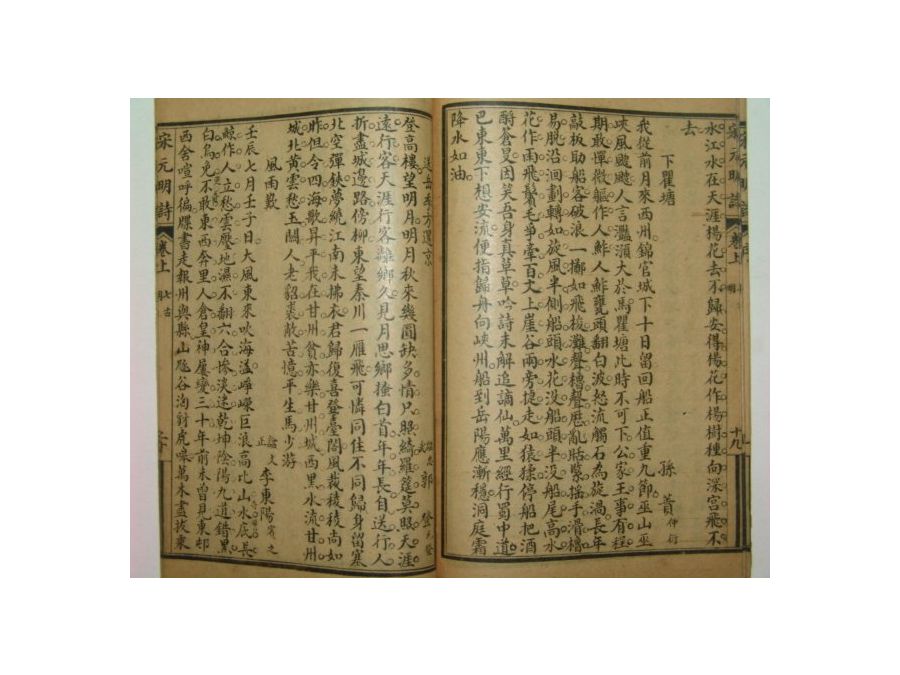 宋元明詩 卷上
十九
水江水在天涯楊花去不歸安得楊花作楊樹種向深宮飛不
去
下瞿塘
孫蕡仲衍
我從前月來西州錦官城下十日留回船正值重九節巫山巫
峽風颼颼人言灩澦大於馬瞿塘此時不可下公家王事有程
期敢憚微軀作人鮓人鮓甕頭翻白波怒流觸石為旋渦長年
敲板助船客破浪一擲如飛梭灘聲櫓聲歷亂聒緊搖手滑櫓
易脫沿洄劃轉如旋風半側船頭水花沒船頭半沒船尾高水
花作雨飛鬢毛爭牽百丈上崖谷兩旁捷走如猿猱停船把酒
酹蒼旻因笑吾身真草草吟詩未解追謫仙萬里經行蜀中道
巴東東下想安流便指歸舟向峽州船到岳陽應漸穩洞庭霜
降水如油
送岳季方還京
郭登元登
登高樓望明月明月秋來幾圓缺多情只照綺羅筵莫照天涯
遠行客天涯行客離鄉久見月思鄉搔白首年年長自送行人
折盡城邊路傍柳東望秦川一雁飛可憐同住不同歸身留塞
北空彈鋏夢繞江南未拂衣君歸復喜登臺閣風裁稜稜尚如
昨但令四海歌昇平我在甘州貧亦樂甘州城西黑水流甘州
城北黃雲愁玉關人老貂裘敝苦憶平生馬少游
風雨歎
李東陽賓之
壬辰七月壬子日大風東來吹海溢崢嶸巨浪高比山水底長
鯨作人立愁雲壓地濕不翻六合慘淡迷乾坤陰陽九道錯黑
白烏兔不敢東西奔里人倉皇神屢變三十年前未曾見東邨
西舍喧呼徧牒書走報州與縣山豗谷洶豺虎嗥萬木盡拔乘
宋元明詩 卷上 七古